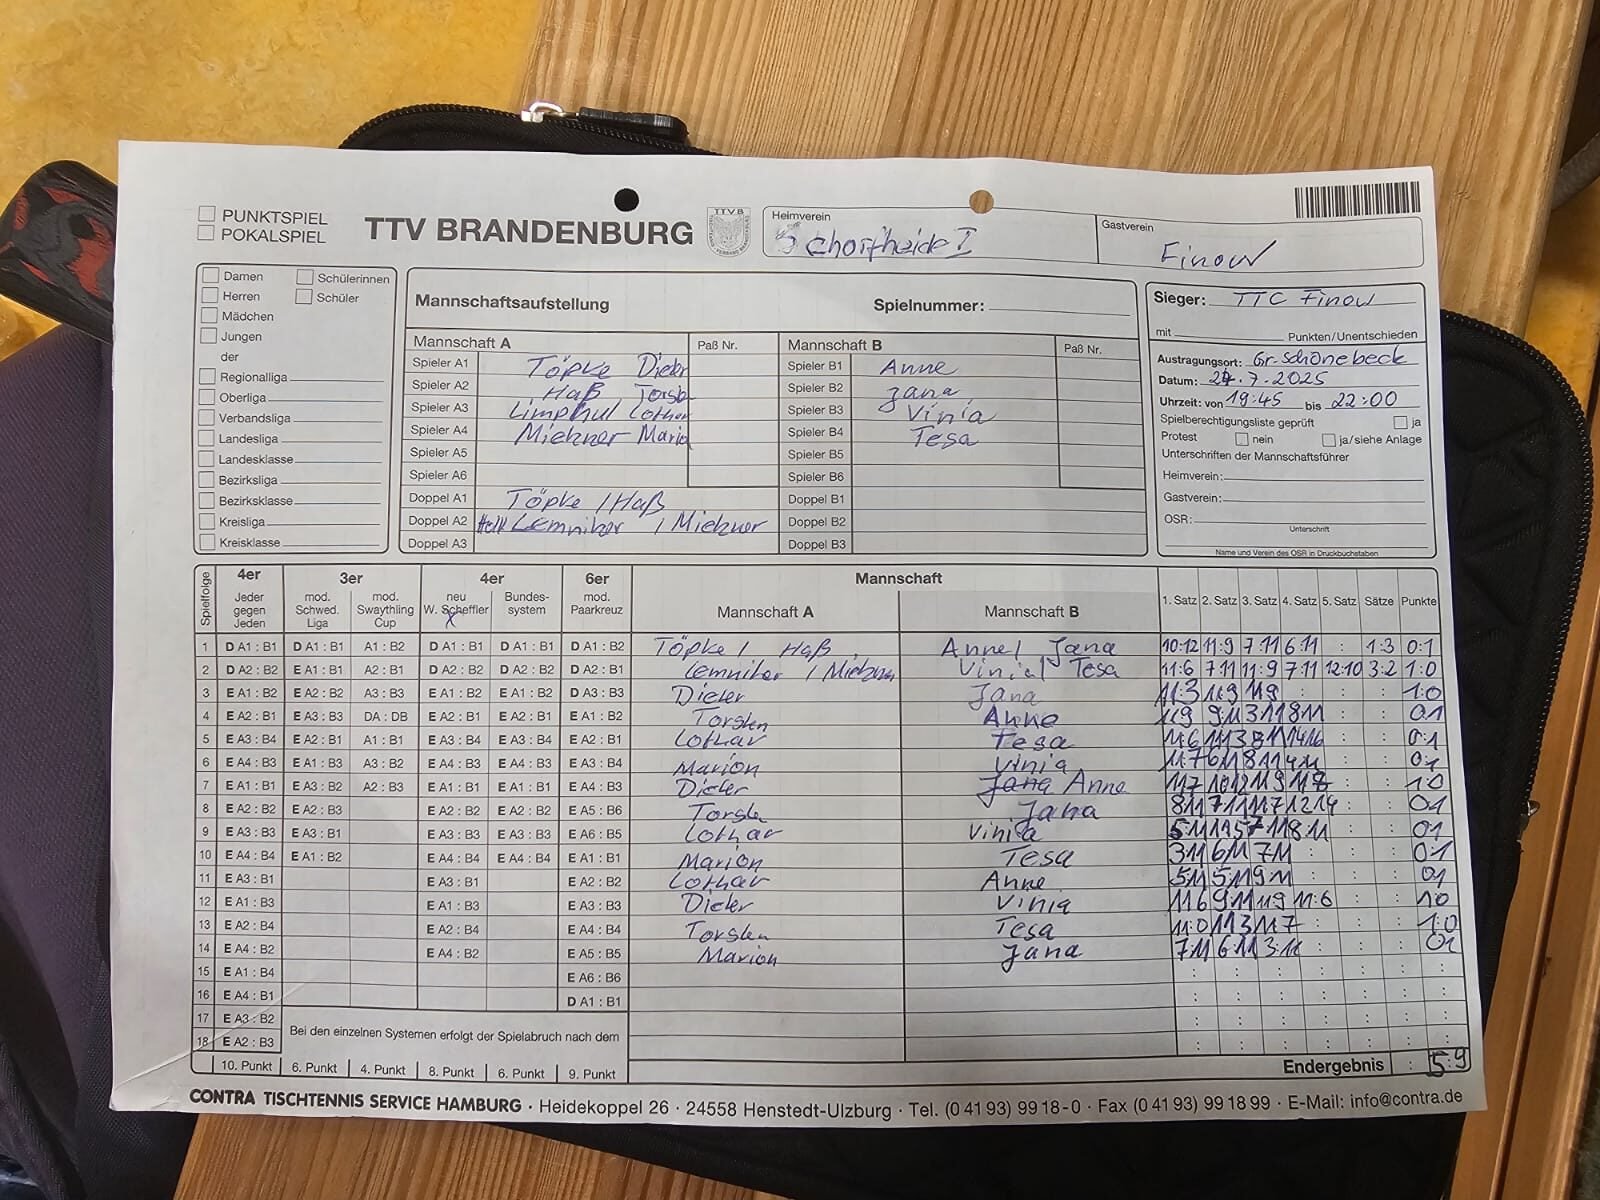 PUNKTSPIEL
POKALSPIEL
TTV BRANDENBURG
TTVB
Heimverein
Schorfheide I
Gastverein
Finow
Damen Schülerinnen
Herren Schüler
Mädchen
Jungen
der
Regionalliga
Oberliga
Verbandsliga
Landesliga
Landesklasse
Bezirksliga
Bezirksklasse
Kreisliga
Kreisklasse
Mannschaftsaufstellung Spielnummer:
Mannschaft A Paß Nr. Mannschaft B Paß Nr.
Spieler A1 Töpke Dieter Spieler B1 Anne
Spieler A2 Haß Torsten Spieler B2 Jana
Spieler A3 Lothar Spieler B3 Vinia
Spieler A4 Miekner Mario Spieler B4 Tesa
Spieler A5 Spieler B5
Spieler A6 Spieler B6
Doppel A1 Töpke / Haß Doppel B1
Doppel A2 Lemniker / Miekner Doppel B2
Doppel A3 Doppel B3
Sieger: TTC Finow
mit Punkten/Unentschieden
Austragungsort: Gr. Schönebeck
Datum: 24.7.2025
Uhrzeit: von 19:45 bis 22:00
Spielberechtigungsliste geprüft ja
Protest nein ja/siehe Anlage
Unterschriften der Mannschaftsführer
Heimverein:
Gastverein:
OSR:
Unterschrift
Name und Verein des OSR in Druckbuchstaben
Spielfolge 4er 3er 4er 6er Mannschaft
Jeder gegen Jeden mod. Schwed. Liga mod. Swaythling Cup neu W. Scheffler Bundes- system mod. Paarkreuz Mannschaft A Mannschaft B 1. Satz 2. Satz 3. Satz 4. Satz 5. Satz Sätze Punkte
1 D A1 : B1 D A1 : B1 A1 : B2 D A1 : B1 D A1 : B1 D A1 : B2 Töpke / Haß Anne / Jana 10:12 11:9 7:11 6:11 : 1:3 0:1
2 D A2 : B2 E A1 : B1 A2 : B1 D A2 : B2 D A2 : B2 D A2 : B1 Lemniker / Miekner Vinia / Tesa 11:6 7:11 11:9 7:11 12:10 3:2 1:0
3 E A1 : B2 E A2 : B2 A3 : B3 E A1 : B2 E A1 : B2 D A3 : B3 Dieter Jana 11:3 11:9 11:9 : : : 1:0
4 E A2 : B1 E A3 : B3 DA : DB E A2 : B1 E A2 : B1 E A1 : B2 Torsten Anne 11:9 9:11 3:11 8:11 : : 0:1
5 E A3 : B4 E A2 : B1 A1 : B1 E A3 : B4 E A3 : B4 E A2 : B1 Lothar Tesa 11:6 11:13 8:11 14:16 : : 0:1
6 E A4 : B3 E A1 : B3 A3 : B2 E A4 : B3 E A4 : B3 E A3 : B4 Marion Vinia 11:7 6:11 8:11 4:11 : : 0:1
7 E A1 : B1 E A3 : B2 A2 : B3 E A1 : B1 E A1 : B1 E A4 : B3 Dieter Jana Anne 11:7 10:12 11:9 11:8 : : 1:0
8 E A2 : B2 E A2 : B3 E A2 : B2 E A2 : B2 E A5 : B6 Torsten Jana 8:11 7:11 11:7 12:14 : : 0:1
9 E A3 : B3 E A3 : B1 E A3 : B3 E A3 : B3 E A6 : B5 Lothar Vinia 5:11 11:5 7:11 8:11 : : 0:1
10 E A4 : B4 E A1 : B2 E A4 : B4 E A4 : B4 E A1 : B1 Marion Tesa 3:11 6:11 7:11 : : : 0:1
11 E A3 : B1 E A3 : B1 E A2 : B2 Lothar Anne 5:11 5:11 9:11 : : : 0:1
12 E A1 : B3 E A1 : B3 E A3 : B3 Dieter Vinia 11:6 9:11 11:9 11:6 : : 1:0
13 E A2 : B4 E A2 : B4 E A4 : B4 Torsten Tesa 11:0 11:3 11:7 : : : 1:0
14 E A4 : B2 E A4 : B2 E A5 : B5 Marion Jana 7:11 6:11 3:11 : : : 0:1
15 E A1 : B4 E A6 : B6 : : : : : : :
16 E A4 : B1 D A1 : B1 : : : : : : :
17 E A3 : B2 : : : : : : :
18 E A2 : B3 : : : : : : :
Bei den einzelnen Systemen erfolgt der Spielabruch nach dem
10. Punkt 6. Punkt 4. Punkt 8. Punkt 6. Punkt 9. Punkt Endergebnis : 5:9
CONTRA TISCHTENNIS SERVICE HAMBURG · Heidekoppel 26 · 24558 Henstedt-Ulzburg · Tel. (0 41 93) 99 18-0 · Fax (0 41 93) 99 18 99 · E-Mail: info@contra.de